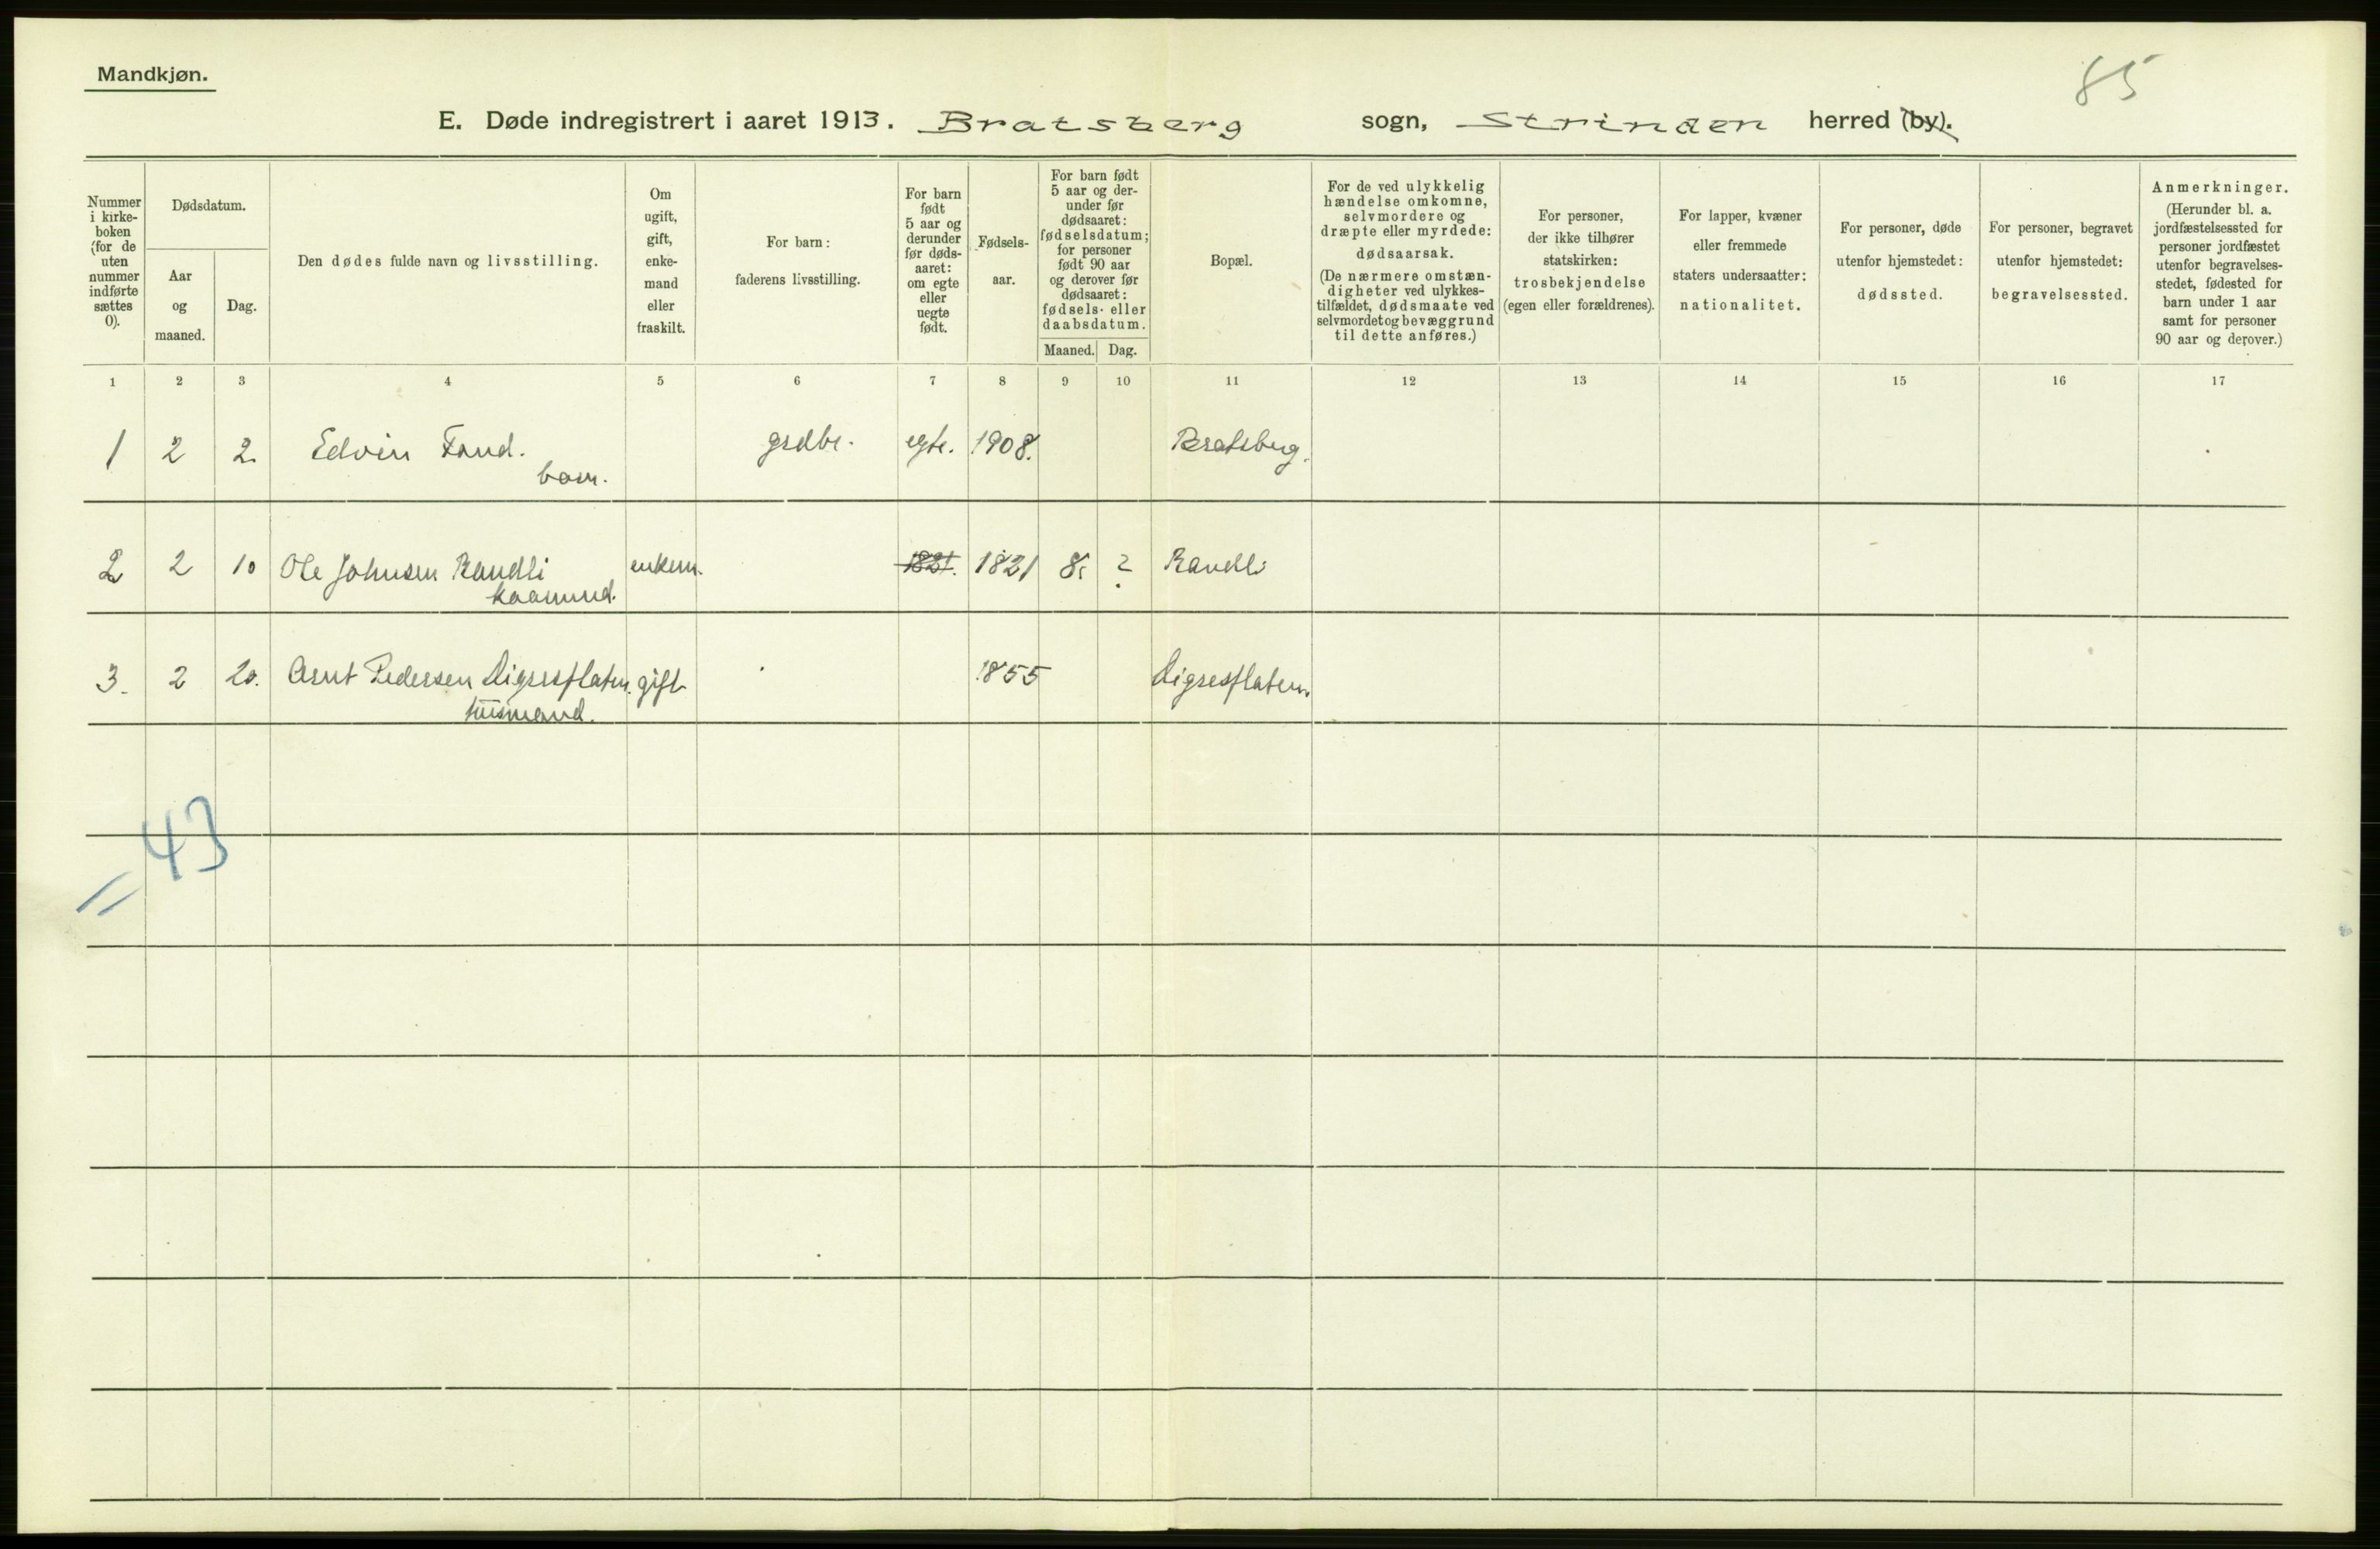 Mandkjøn.
85
E. Døde indregistrert i aaret 1913. Bratsberg sogn, Strinden herred (by).
Nummer i kirke-boken (for de uten nummer indførte sættes 0).
Dødsdatum.
Aar og maaned.
Dag.
Den dødes fulde navn og livsstilling.
Om ugift, gift, enke-mand eller fraskilt.
For barn: faderens livsstilling.
For barn født 5 aar og derunder før døds-aaret: om egte eller uegte født.
Fødsels-aar.
For barn født 5 aar og der-under før dødsaaret: fødselsdatum; for personer født 90 aar og derover før dødsaaret: fødsels- eller daabsdatum.
Maaned. Dag.
Bopæl.
For de ved ulykkelig hændelse omkomne, selvmordere og dræpte eller myrdede: dødsaarsak. (De nærmere omstæn-digheter ved ulykkes-tilfældet, dødsmaate ved selvmordet og bevæggrund til dette anføres.)
For personer, der ikke tilhører statskirken: trosbekjendelse (egen eller forældrenes).
For lapper, kvæner eller fremmede staters undersaatter: nationalitet.
For personer, døde utenfor hjemstedet: dødssted.
For personer, begravet utenfor hjemstedet: begravelsessted.
Anmerkninger. (Herunder bl. a. jordfæstelsessted for personer jordfæstet utenfor begravelses-stedet, fødested for barn under 1 aar samt for personer 90 aar og derover.)
1 2 3 4 5 6 7 8 9 10 11 12 13 14 15 16 17
1 2 2 Edvin Fand. grdbr. egte. 1908. Bratsberg.
barn.
2 2 10 Ole Johnsen Randli enkem. 1821. 1821 8. ? Randli
kaarmand.
3. 2 20. Arnt Pedersen Digresflaten. gift 1855 Digresflaten.
husmand.
= 43